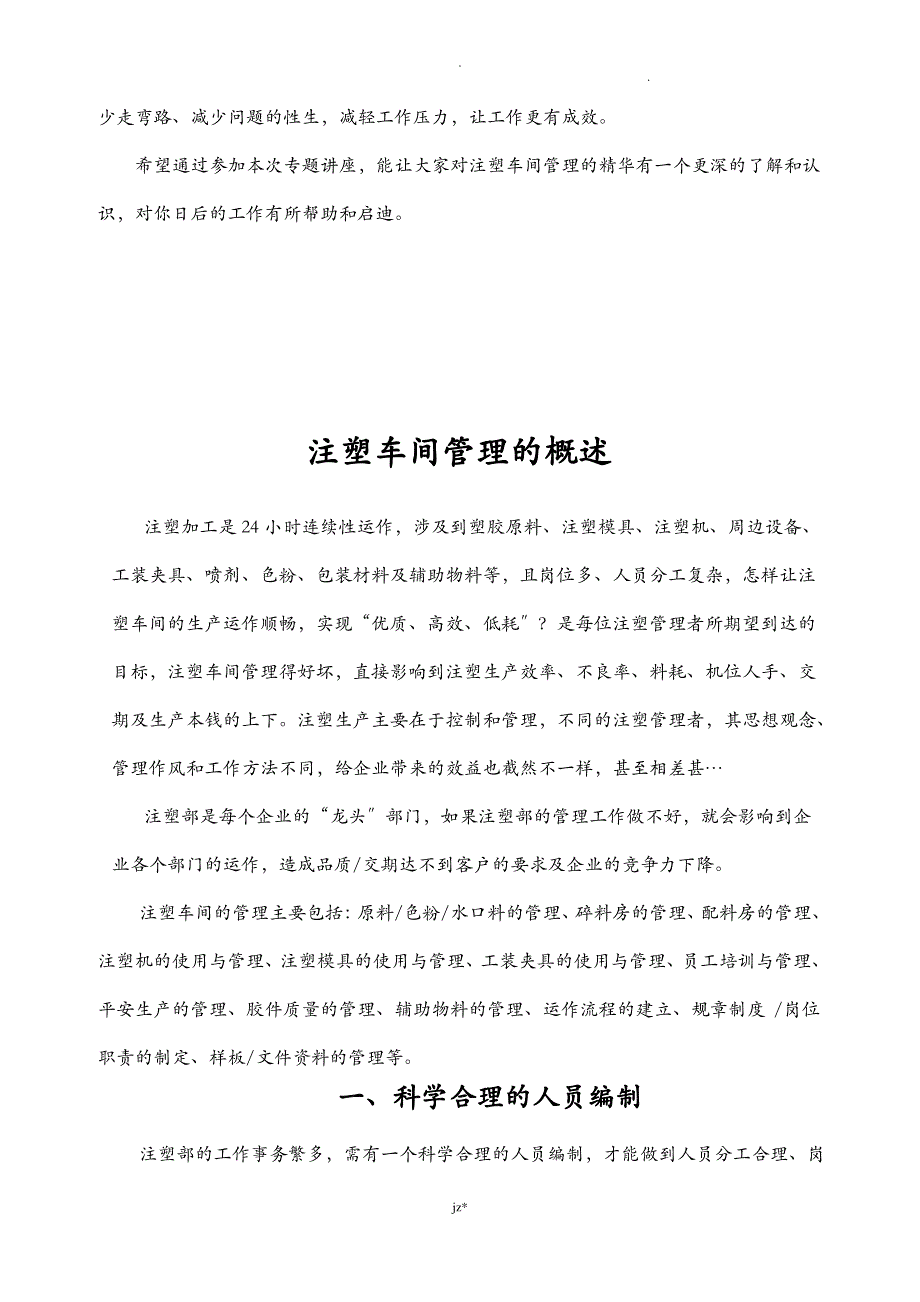 少走弯路、减少问题的性生，减轻工作压力，让工作更有成效。
希望通过参加本次专题讲座，能让大家对注塑车间管理的精华有一个更深的了解和认
识，对你日后的工作有所帮助和启迪。
注塑车间管理的概述
注塑加工是 24 小时连续性运作，涉及到塑胶原料、注塑模具、注塑机、周边设备、
工装夹具、喷剂、色粉、包装材料及辅助物料等，且岗位多、人员分工复杂，怎样让注
塑车间的生产运作顺畅，实现“优质、高效、低耗〞？是每位注塑管理者所期望到达的
目标，注塑车间管理得好坏，直接影响到注塑生产效率、不良率、料耗、机位人手、交
期及生产本钱的上下。注塑生产主要在于控制和管理，不同的注塑管理者，其思想观念、
管理作风和工作方法不同，给企业带来的效益也截然不一样，甚至相差甚…
注塑部是每个企业的“龙头〞部门，如果注塑部的管理工作做不好，就会影响到企
业各个部门的运作，造成品质/交期达不到客户的要求及企业的竞争力下降。
注塑车间的管理主要包括：原料/色粉/水口料的管理、碎料房的管理、配料房的管理、
注塑机的使用与管理、注塑模具的使用与管理、工装夹具的使用与管理、员工培训与管理、
平安生产的管理、胶件质量的管理、辅助物料的管理、运作流程的建立、规章制度 /岗位
职责的制定、样板/文件资料的管理等。
一、科学合理的人员编制
注塑部的工作事务繁多，需有一个科学合理的人员编制，才能做到人员分工合理、岗
jz*